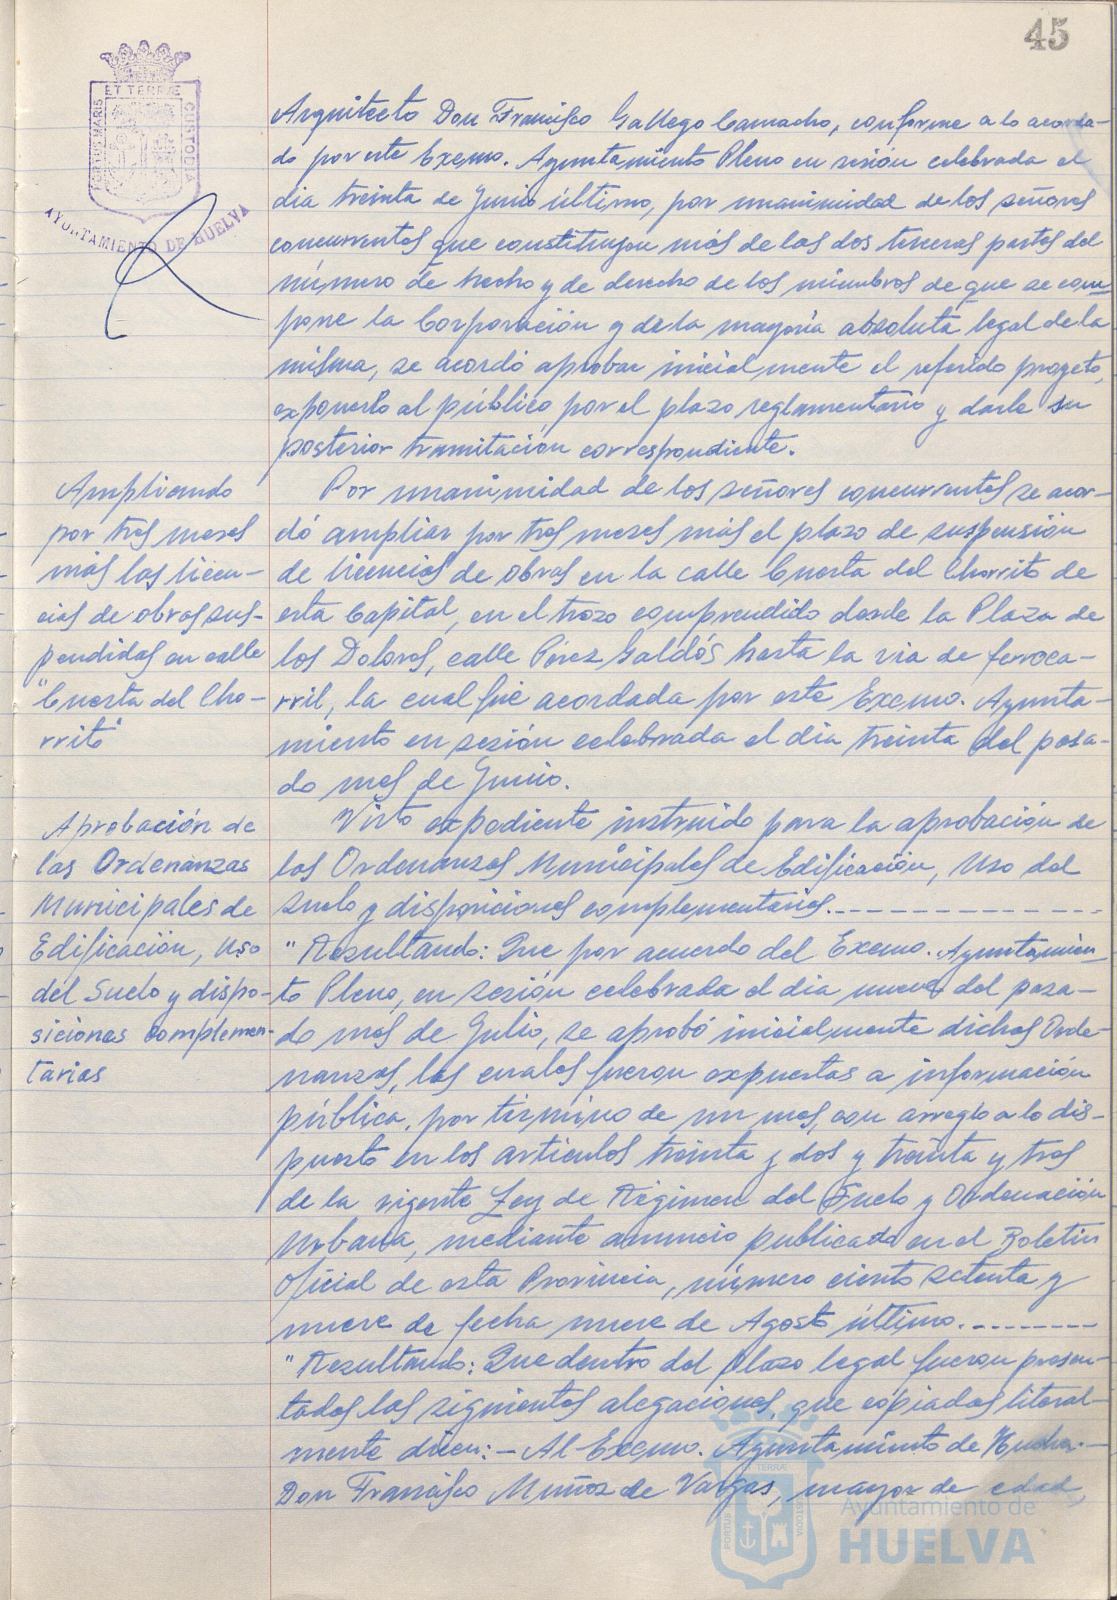 45
ET TERRÆ
PORTUS MARIS
CUSTODIA
AYUNTAMIENTO DE HUELVA
Arquitecto Don Francisco Gallego Camacho, conforme a lo acorda-
do por este Excmo. Ayuntamiento Pleno en sesión celebrada el
dia treinta de Junio último, por unanimidad de los señores
concurrentes que constituyen más de las dos terceras partes del
número de hecho y de derecho de los miembros de que se com-
pone la Corporación y de la mayoria absoluta legal de la
misma, se acordó aprobar inicialmente el referido proyecto,
exponerlo al público por el plazo reglamentario y darle su
posterior tramitación correspondiente.
Ampliando
por tres meses
más las licen-
cias de obras sus-
pendidas en calle
"Cuesta del Cho-
rrito"
Por unanimidad de los señores concurrentes se acor-
dó ampliar por tres meses más el plazo de suspensión
de licencias de obras en la calle Cuesta del Chorrito de
esta Capital, en el trozo comprendido desde la Plaza de
los Dolores, calle Pérez Galdós hasta la via de ferroca-
rril, la cual fué acordada por este Excmo. Ayunta-
miento en sesión celebrada el dia treinta del pasa-
do mes de Junio.
Aprobación de
las Ordenanzas
Municipales de
Edificación, Uso
del Suelo y dispo-
siciones complemen-
tarias
Visto expediente instruido para la aprobación de
las Ordenanzas Municipales de Edificación, Uso del
Suelo y disposiciones complementarias.
"Resultando: Que por acuerdo del Excmo. Ayuntamien-
to Pleno, en sesión celebrada el dia nueve del pasa-
do mes de Julio, se aprobó inicialmente dichas Orde-
nanzas, las cuales fueron expuestas a información
pública, por término de un mes, con arreglo a lo dis-
puesto en los articulos treinta y dos y treinta y tres
de la vigente Ley de Régimen del Suelo y Ordenación
Urbana, mediante anuncio publicado en el Boletin
Oficial de esta Provincia, número ciento setenta y
nueve de fecha nueve de Agosto último.
"Resultando: Que dentro del plazo legal fueron presen-
tadas las siguientes alegaciones, que copiadas literal-
mente dicen: - Al Excmo. Ayuntamiento de Huelva.-
Don Francisco Muñoz de Vargas, mayor de edad,
TERRÆ
PORTUS
CUSTODIA
Ayuntamiento de
HUELVA